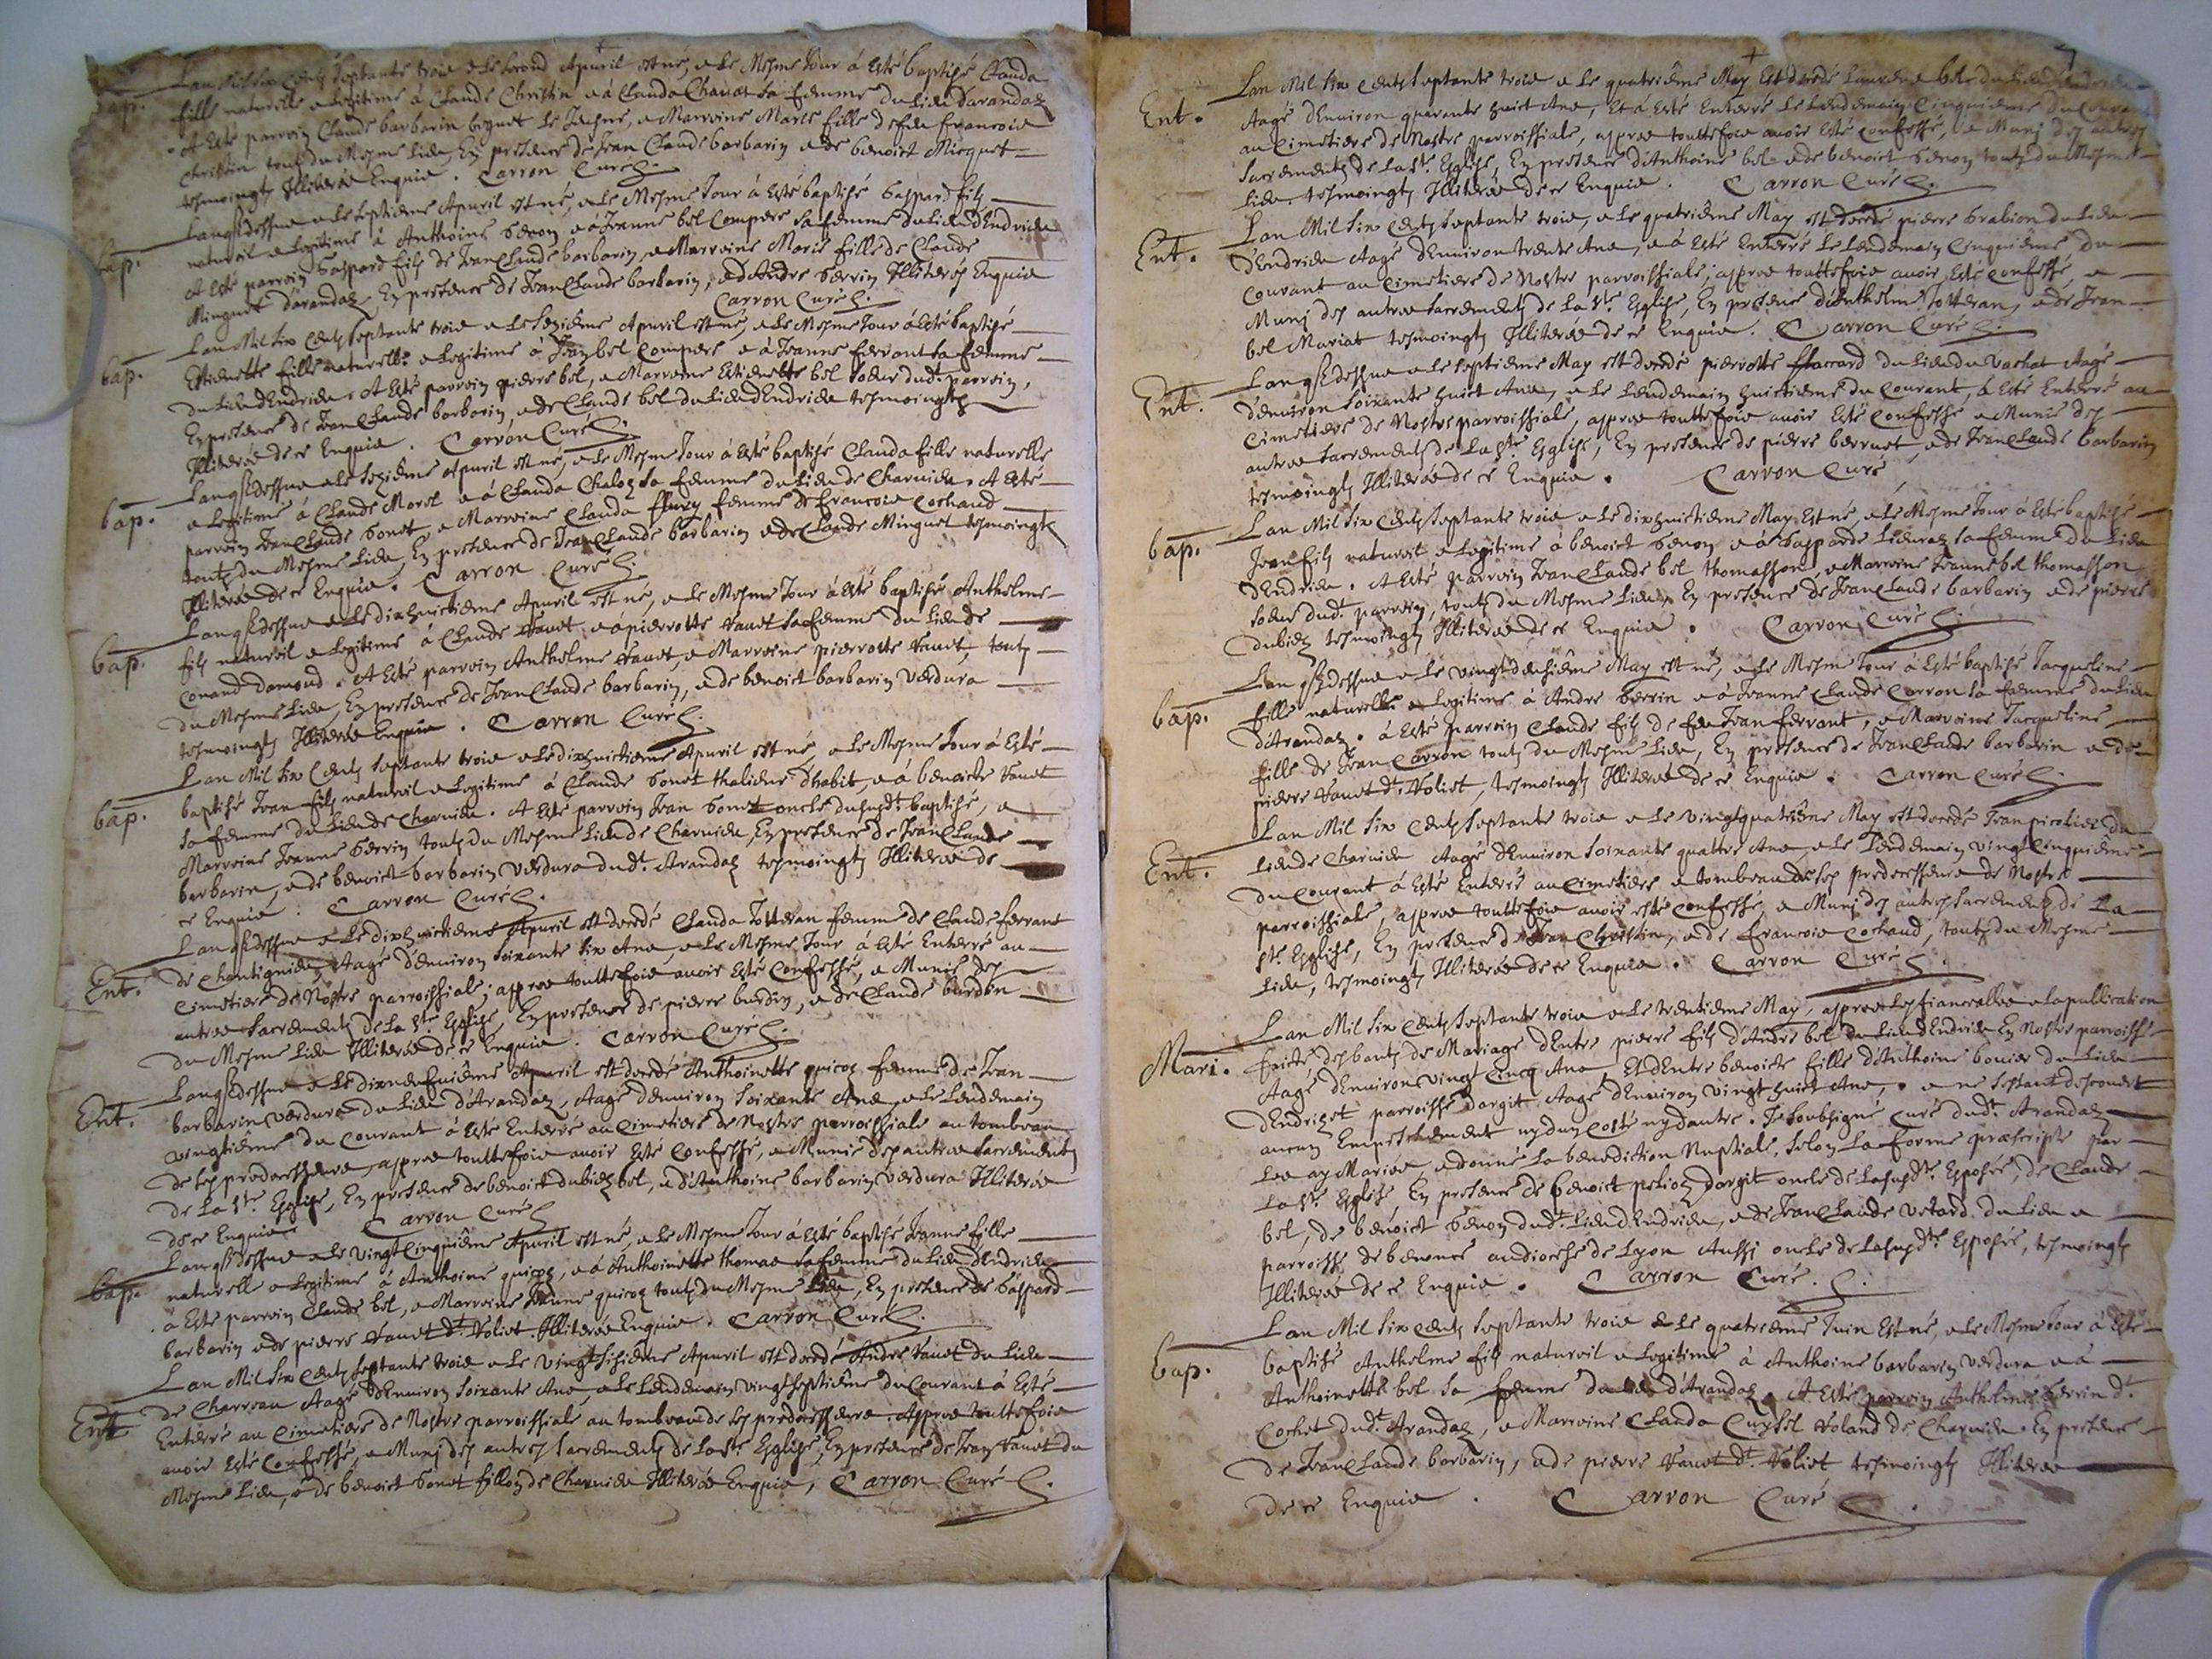 bap. Lan Mil Six Centz Septante trois & le second Apuril est né, & le Mesme Jour à Esté baptisé Clauda
fille naturelle & Legitime à Claude Christin & à Clauda Chauat sa femme du lieu darandaz
A Esté parroin Claude barbarin boguet le Jeusne, & Marroine Marie fille de feu francois
Christin toutz du Mesme lieu, En presence de Jean Claude barbarin & de benoict Micquet
tesmoingtz Illiterés Enquis. Carron Curé
bap. Lan q̄ Dessus & le Septieme Apuril est né, & le Mesme Jour à Esté baptisé Gaspard filz
naturel & Legitime à Anthoine benon & à Jeanne bel Compere sa femme du lieu dEndrieu
A Esté parroin Gaspard filz de Jean Claude barbarin, & Marroine Marie fille de Claude
Minguet darandaz, En presence de Jean Claude barbarin, & dAndre Gerrin Illiterés Enquis
Carron Curé
bap. Lan Mil Six Centz Septante trois & le Sezieme Apuril est né, & le Mesme Jour à Esté baptisé
Estienette fille naturelle & Legitime à Jean bel Compere & à Jeanne ferrant sa femme
du lieu dEndrieu. A Esté parroin pierre bel, & Marroine Estienette bel soeur dud.t parroin,
En presence de Jean Claude barbarin & de Claude bel du lieu dEndrieu tesmoingtz
Illiterés de ce Enquis. Carron Curé
bap. Lan q̄ Dessus & le Sezieme Apuril est né, & le Mesme Jour à Esté baptisé Clauda fille naturelle
& Legitime à Claude Morel & à Clauda Chaloz sa femme du lieu de Charuieu. A Esté
parroin Jean Claude bonet & Marroine Clauda fleury femme de francois Cochaud
toutz du Mesme lieu, En presence de Jean Claude barbarin & de Claude Minguet tesmoingtz
Illiterés de ce Enquis. Carron Curé
bap. Lan q̄ Dessus & le dixhuictieme Apuril est né, & le Mesme Jour à Esté baptisé Anthelme
filz naturel & Legitime à Claude Vauet & à pierrotte Vauet sa femme du lieu de
Conand damond. A Esté parroin Anthelme Vauet, & Marroine pierrotte Vauet, toutz
du Mesme lieu, En presence de Jean Claude barbarin, & de benoict barbarin Verdura
tesmoingtz Illiterés Enquis. Carron Curé
bap. Lan Mil Six Centz Septante trois & le dixhuictieme Apuril est né, & le Mesme Jour à Esté
baptisé Jean filz naturel & Legitime à Claude bonet thalieur dhabit, & à benoicte Vauet
sa femme du lieu de Charuieu. A Esté parroin Jean bonet oncle dususd.t baptisé, &
Marroine Jeanne Gerrin toutz du Mesme lieu de Charuieu, En presence de Jean Claude
barbarin, & de benoict barbarin Verdura dud.t Arandaz tesmoingtz Illiterés de
ce Enquis. Carron Curé
Ent. Lan q̄ Dessus & le dixhuictieme Apuril est decedé Clauda Jotteran femme de Claude ferrant
de Chantignieu, Aagé dEnuiron soixante six Ans, & le Mesme Jour à Esté Enterré au
Cimetiere de Nostre parroissiale, appres touttefois auoir Esté Confessé, & Munie des
autres sacrementz de la S.te Esglise, En presence de pierre burdin, & de Claude burdin
du Mesme lieu Illiterés de ce Enquis. Carron Curé
Ent. Lan q̄ Dessus & le dixneufuieme Apuril est decedé Anthoinette quicoz femme de Jean
barbarin Verdura du lieu dArandaz, Aagé dEnuiron soixante Ans & le Lendemain
vingtieme du Courant à Esté Enterré au Cimetiere de Nostre parroissiale au tombeau
de ses predecesseurs, appres touttefois auoir Esté Confessé, & Munie des autres sacrementz
de la S.te Esglise, En presence de benoict dubiez bel, & dAnthoine barbarin Verdura Illiterés
de ce Enquis. Carron Curé
bap. Lan q̄ Dessus & le vingtcinquieme Apuril est né, & le Mesme Jour à Esté baptisé Jeanne fille
naturelle & Legitime à Anthoine quicoz, & à Anthoinette thomas sa femme du lieu dEndrieu
à Esté parroin Claude bel, & Marroine Jeanne quicoz toutz du Mesme lieu, En presence de Gaspard
barbarin & de pierre Vauet d.t Voliet Illiterés Enquis. Carron Curé
Ent. Lan Mil Six Centz Septante trois & le vingtsixieme Apuril est decedé Andre Vauet du lieu
de Charueau Aagé dEnuiron soixante Ans & le Lendemain vingtseptieme du Courant à Esté
Enterré au Cimetiere de Nostre parroissiale au tombeau de ses predecesseurs. Appres touttefois
auoir Esté Confessé, & Munj des autres sacrementz de la S.te Esglise, En presence de Jean Vauet du
Mesme lieu, & de benoict bonet fillon de Charuieu Illiterés Enquis, Carron Curé
7
Ent. Lan Mil Six Centz Septante trois & le quatrieme May Est decedé Laurens bel du lieu
Aagé dEnuiron quarante huict Ans, Et à Esté Enterré le Lendemain Cinquieme du Courant
au Cimetiere de Nostre parroissiale, appres touttefois auoir Esté Confessé, & Munj des autres
sacrementz de la S.te Esglise, En presence dAnthoine bel & de benoict benon toutz du Mesme
lieu tesmoingtz Illiterés de ce Enquis. Carron Curé
Ent. Lan Mil Six Centz Septante trois, & le quatrieme May est decedé pierre brabion du lieu
dEndrieu Aagé dEnuiron trente Ans, & à Esté Enterré le Lendemain Cinquieme du
Courant au Cimetiere de Nostre parroissiale, appres touttefois auoir Esté Confessé, &
Munj des autres sacrementz de la S.te Esglise, En presence dAnthelme Jotteran, & de Jean
bel Mariat tesmoingtz Illiterés de ce Enquis. Carron Curé
Ent. Lan q̄ Dessus & le septieme May est decedé pierrotte ffaccard du lieu du Vachat Aagé
dEnuiron soixante huict Ans, & le Lendemain huictieme du Courant, à Esté Enterré au
Cimetiere de Nostre parroissiale, appres touttefois auoir Esté Confessé & Munie des
autres sacrementz de la S.te Esglise, En presence de pierre berruet, & de Jean Claude barbarin
tesmoingtz Illiterés de ce Enquis. Carron Curé
bap. Lan Mil Six Centz Septante trois & le dixhuictieme May Est né, & le Mesme Jour à Esté baptisé
Jean filz naturel & Legitime à benoict benon & à Gasparde Lieuraz sa femme du lieu
dEndrieu. A Esté parroin Jean Claude bel thomasson, & Marroine Jeanne bel thomasson
soeur dud.t parroin, toutz du Mesme lieu, En presence de Jean Claude barbarin & de pierre
dubiez tesmoingtz Illiterés de ce Enquis. Carron Curé
bap. Lan q̄ Dessus & le vingtdeusieme May est né, & le Mesme Jour à Esté baptisé Jacqueline
fille naturelle & Legitime à Andre Gerrin & à Jeanne Claude Carron sa femme du lieu
dArandaz. à Esté parroin Claude filz de feu Jean ferrant, & Marroine Jacqueline
fille de Jean Carron toutz du Mesme lieu, En presence de Jean Claude barbarin & de
pierre Vauet d.t Voliet, tesmoingtz Illiterés de ce Enquis. Carron Curé
Ent. Lan Mil Six Centz Septante trois & le vingtquatrieme May est decedé Jean picolier du
lieu de Charuieu Aagé dEnuiron soixante quattre Ans & le Lendemain vingtcinquieme
du Courant à Esté Enterré au Cimetiere & tombeau de ses predecesseurs de Nostre
parroissiale, appres touttefois auoir esté confessé, & Munj des autres sacrementz de La
S.te Esglise, En presence de Jean Christin, & de francois Cochaud, toutz du Mesme
Lieu, tesmoingtz Illiterés de ce Enquis. Carron Curé
Mari. Lan Mil Six Centz Septante trois & le trentieme May, appres les fianceailles & la publication
faicte des bantz de Mariage dEntre pierre filz dAndre bel du lieu dEndrieu En Nostre parroisse
Aagé dEnuiron vingt Cinq Ans, Et dEntre benoicte fille dAnthoine bouier du lieu
dEndriset parroisse dargit Aagé dEnuiron vingt huict Ans, & ne sestant descouuert
aucun Empeschement ny dun costé ny dautre. Je soubsigné Curé dud.t Arandaz
les ay Mariés, & donné la benediction Nuptiale, selon la forme præscripte par
la S.te Esglise En presence de benoict pelion dargit oncle de lasusd.te Esposée, de Claude
bel, de benoict benon dud.t lieu dEndrieu, & de Jean Claude Vetard du lieu &
parroisse de benonce au diocese de Lyon Aussi oncle de lasusd.te Esposée, tesmoingtz
Illiterés de ce Enquis. Carron Curé.
bap. Lan Mil Six Centz Septante trois & le quatrieme Juin Est né, & le Mesme Jour à Esté
baptisé Anthelme filz naturel & Legitime à Anthoine barbarin Verdura & à
Anthoinette bel sa femme du lieu dArandaz. A Esté parroin Anthelme Gerrin d.t
Cochet dud.t Arandaz, & Marroine Clauda Voland de Charuieu. En presence
de Jean Claude barbarin, & de pierre Vauet d.t Voliet tesmoingtz Illiterés
de ce Enquis. Carron Curé